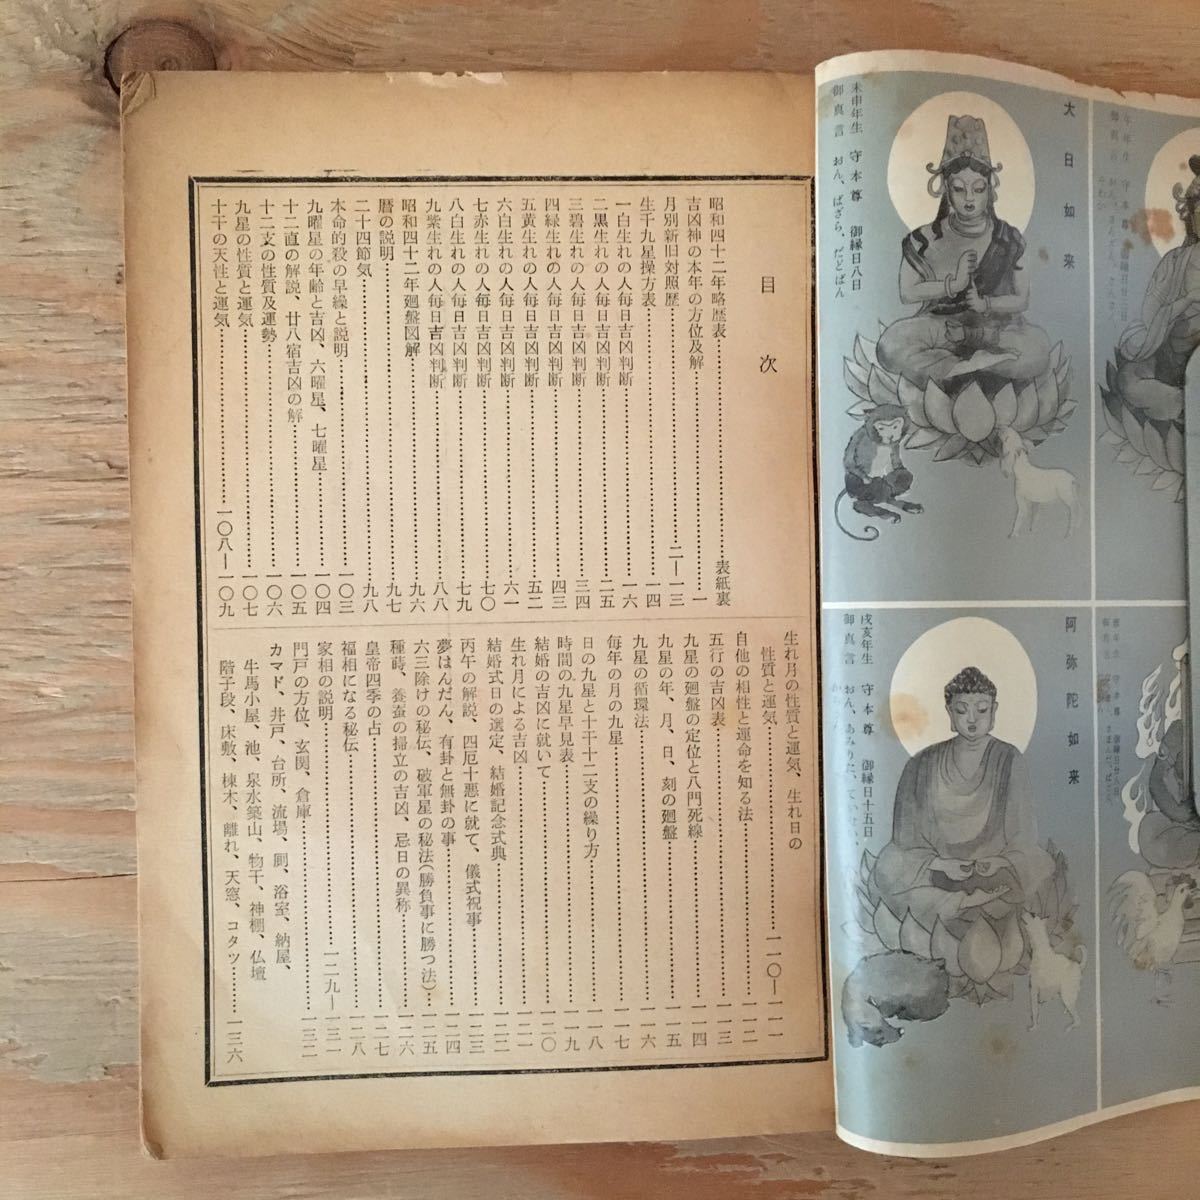 目次
昭和四十二年略歴表 表紙裏
吉凶神の本年の方位及解 一
月別新旧対照歴 二―一三
生千九星操方表 一四
一白生れの人毎日吉凶判断 一六
二黒生れの人毎日吉凶判断 二五
三碧生れの人毎日吉凶判断 三四
四緑生れの人毎日吉凶判断 四三
五黄生れの人毎日吉凶判断 五二
六白生れの人毎日吉凶判断 六一
七赤生れの人毎日吉凶判断 七〇
八白生れの人毎日吉凶判断 七九
九紫生れの人毎日吉凶判断 八八
昭和四十二年廻盤図解 九六
暦の説明 九七
二十四節気 九八
本命的殺の早繰と説明 一〇三
九曜星の年齢と吉凶、六曜星、七曜星 一〇四
十二直の解説、廿八宿吉凶の解 一〇五
十二支の性質及運勢 一〇六
九星の性質と運気 一〇七
十干の天性と運気 一〇八―一〇九
生れ月の性質と運気、生れ日の
性質と運気 一一〇―一一一
自他の相性と運命を知る法 一一二
五行の吉凶表 一一三
九星の廻盤の定位と八門死線 一一四
九星の年、月、日、刻の廻盤 一一五
九星の循環法 一一六
毎年の月の九星 一一七
日の九星と十干十二支の繰り方 一一八
時間の九星早見表 一一九
結婚の吉凶に就いて 一二〇
生れ月による吉凶 一二一
結婚式日の選定、結婚記念式典 一二二
丙午の解説、四厄十悪に就て、儀式祝事 一二三
夢はんだん、有卦と無卦の事 一二四
六三除けの秘伝、破軍星の秘法(勝負事に勝つ法) 一二五
種蒔、養蚕の掃立の吉凶、忌日の異称 一二六
皇帝四季の占 一二七
福相になる秘伝 一二八
家相の説明 一二九―一三一
門戸の方位、玄関、倉庫 一三二
カマド、井戸、台所、流場、厠、浴室、納屋、
牛馬小屋、池、泉水築山、物干、神棚、仏壇
階子段、床敷、棟木、離れ、天窓、コタツ 一三六
大日如来
未申年生 守本尊 御縁日八日
御真言 おん、ばざら、だとばん
阿弥陀如来
戌亥年生 守本尊 御縁日十五日
御真言 おん、あみりた、ていせい、